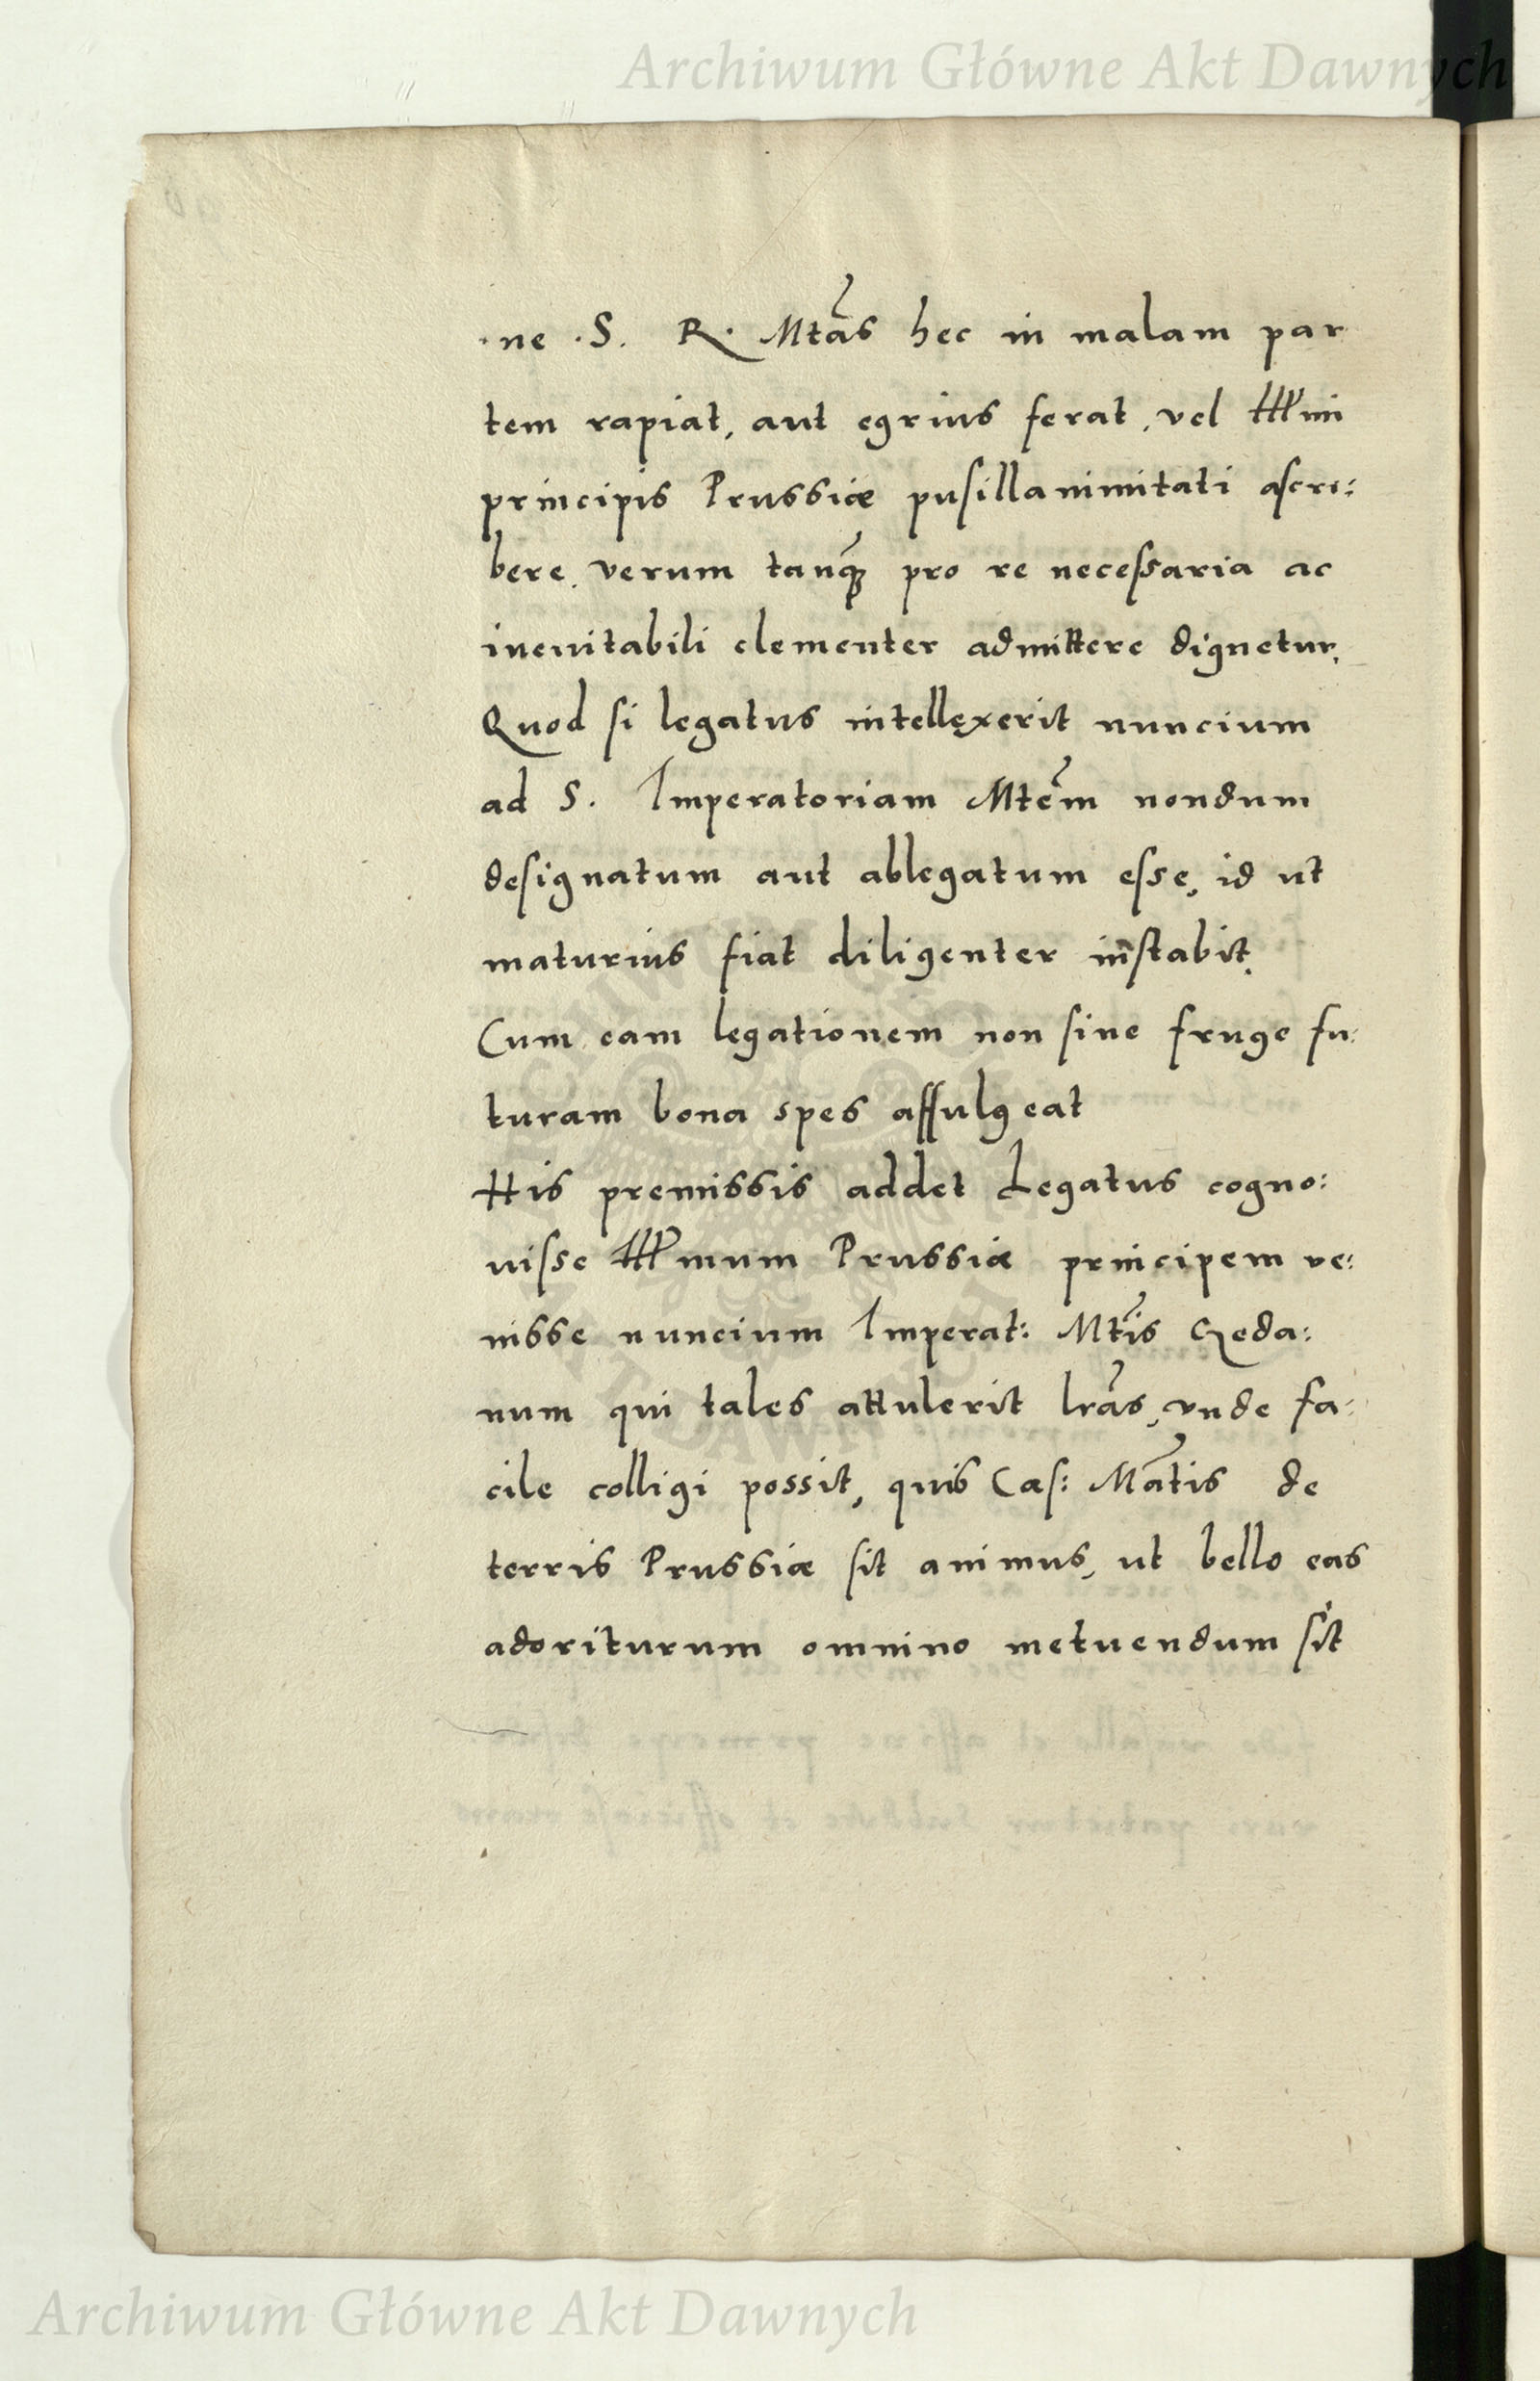 Archiwum Główne Akt Dawnych
ne .S. R. Mtas hec in malam par
tem rapiat, aut egrius ferat, vel Illmi
principis Prussiæ pusillanimitati ascri:
bere, verum tanq̃ pro re necessaria ac
ineuitabili clementer admittere dignetur,
Quod si legatus intellexerit nuncium
ad S. Imperatoriam Mtem nondum
designatum aut ablegatum esse, id ut
maturius fiat diligenter instabit,
Cum eam legationem non sine fruge fu:
turam bona spes affulgeat
His premissis addet Legatus cogno:
uisse Illmum Prussiæ principem ve:
nisse nuncium Imperat: Mtis Geda:
num qui tales attulerit lras, vnde fa:
cile colligi possit, quis Cæs: Matis de
terris Prussiæ sit animus, ut bello eas
adoriturum omnino metuendum sit
Archiwum Główne Akt Dawnych